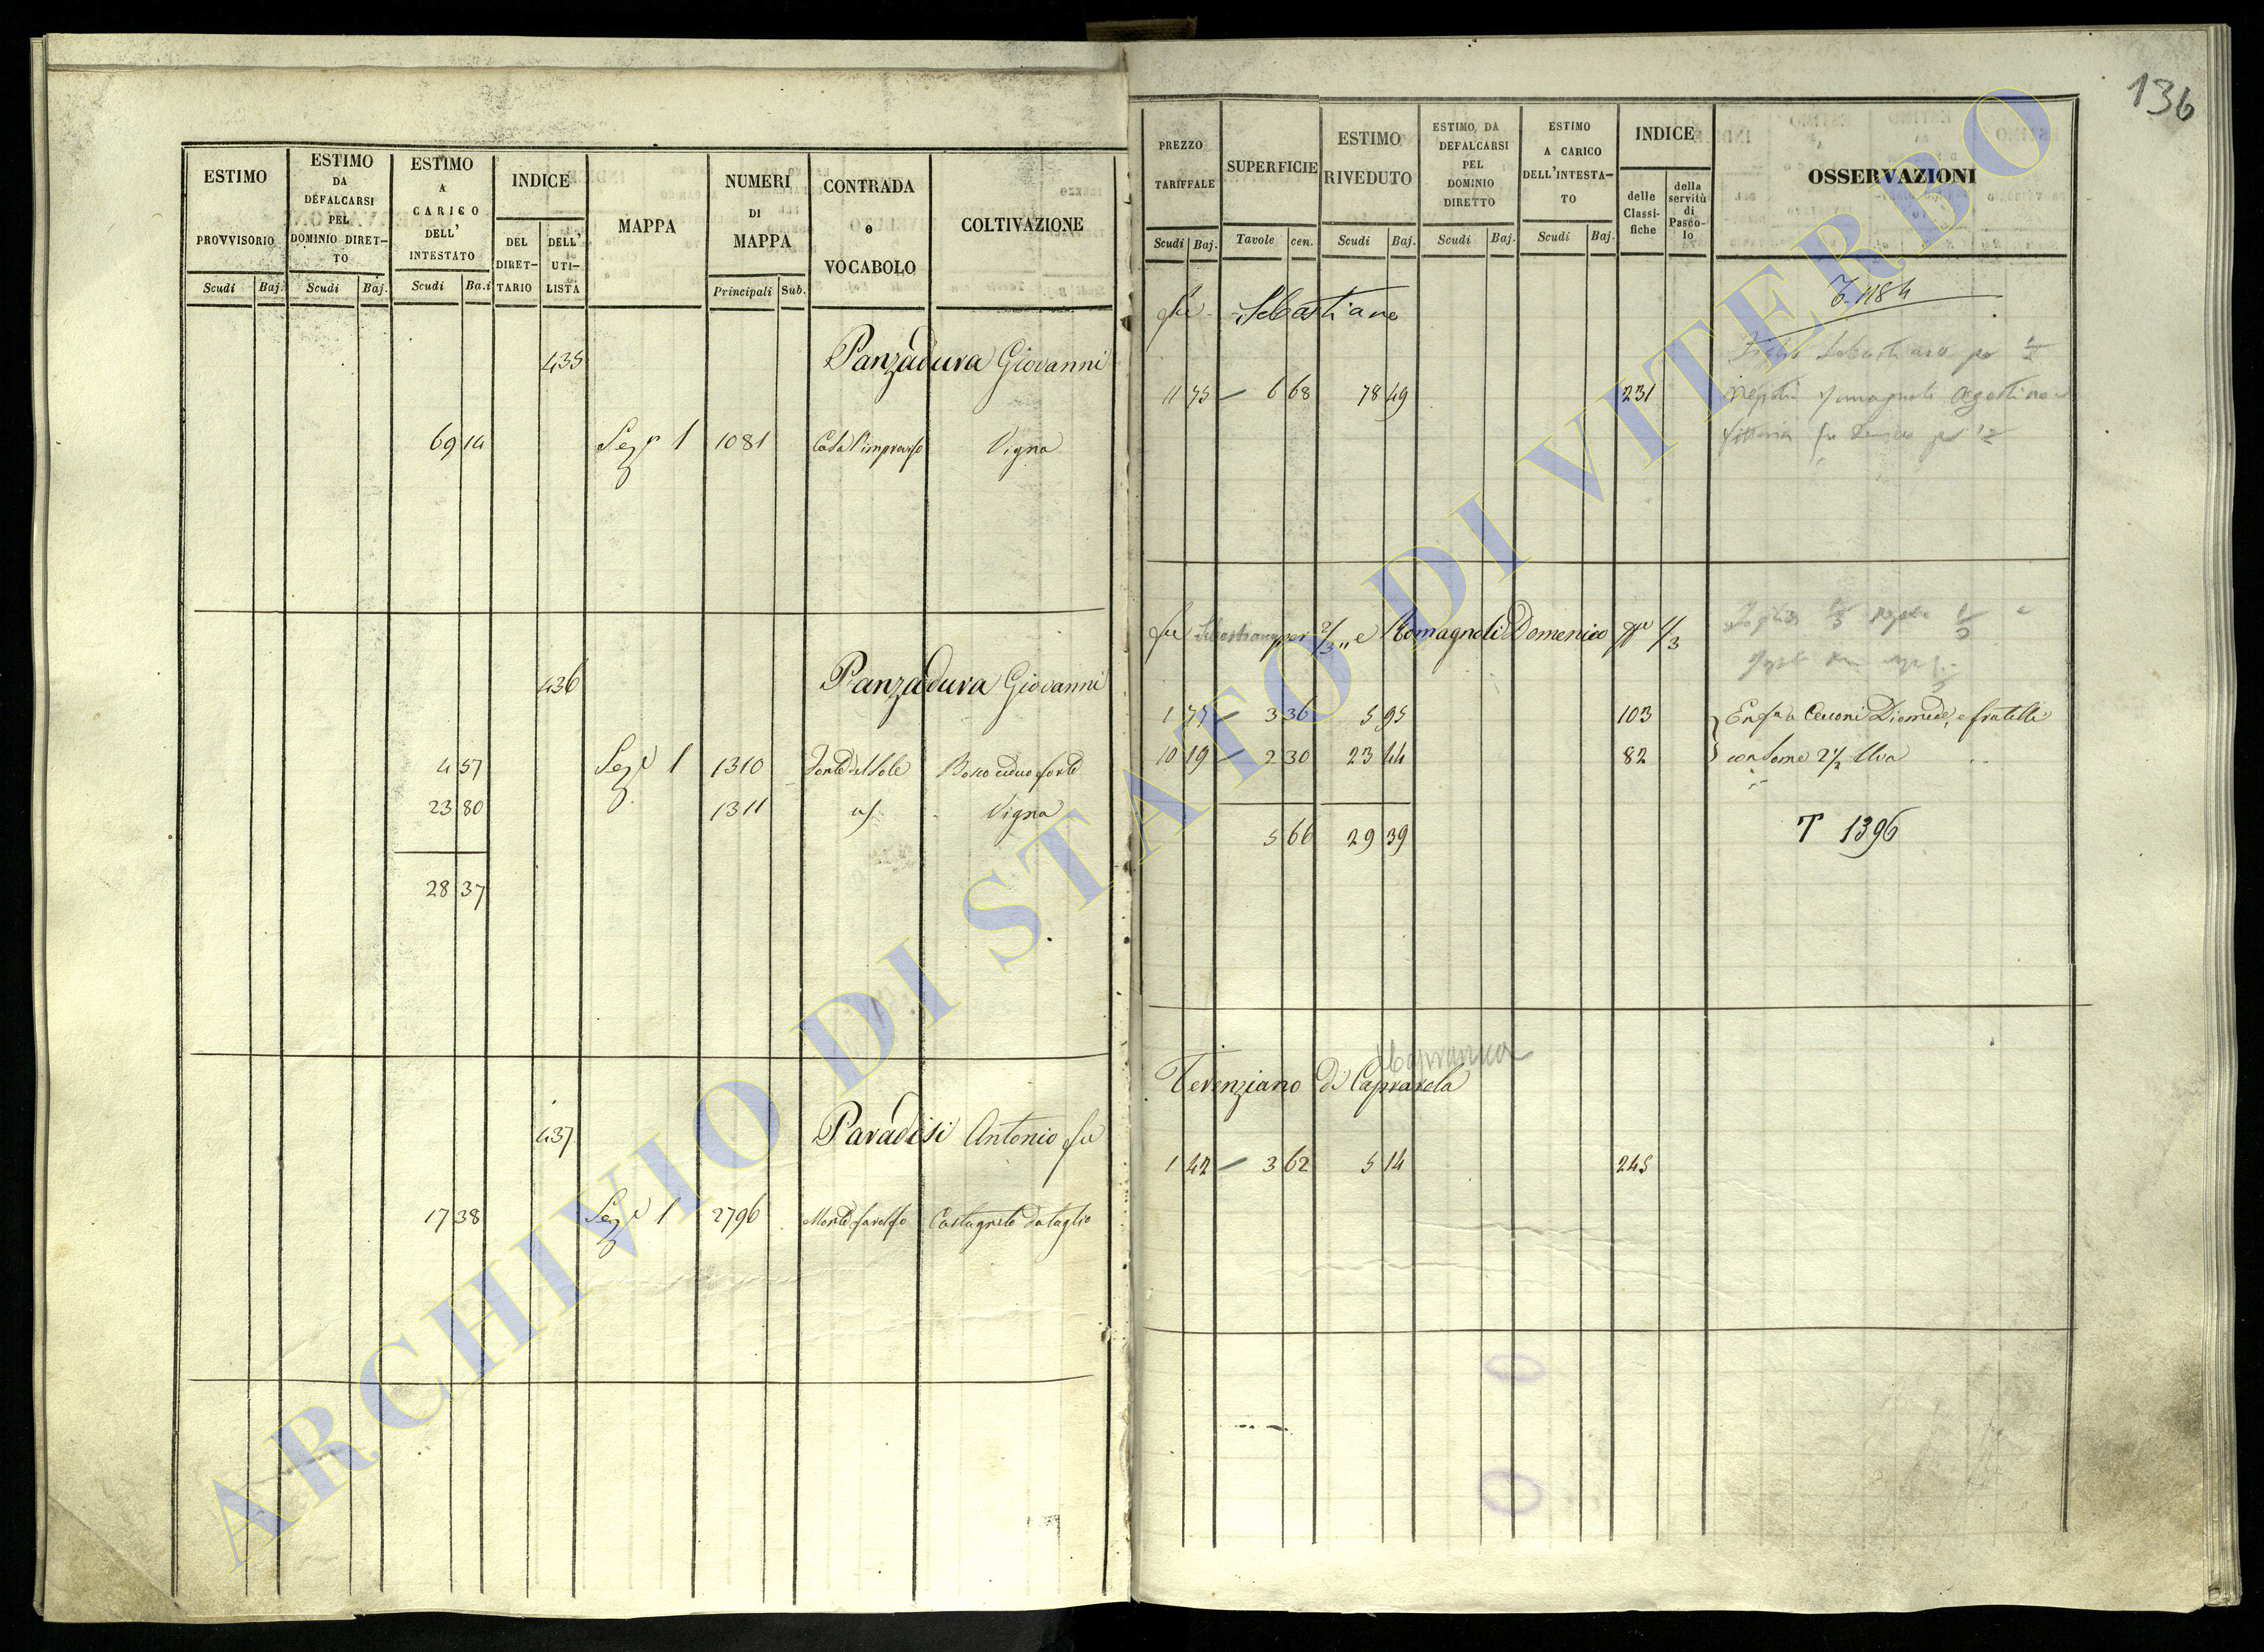 136
ESTIMO PROVVISORIO
ESTIMO DA DEFALCARSI PEL DOMINIO DIRET-TO
ESTIMO A CARICO DELL' INTESTATO
INDICE
DEL DIRET-TARIO
DELL' UTI-LISTA
MAPPA
NUMERI DI MAPPA
CONTRADA o VOCABOLO
COLTIVAZIONE
Scudi Baj. Scudi Baj. Scudi Ba.i Principali Sub.
435 Panzadura Giovanni
69 14 Sez.e 1 1081 Vigna
436 Panzadura Giovanni
4 57 Sez.e 1 1310 Bosco ceduo forte
23 80 1311 Vigna
28 37
437 Paradisi Antonio fu
17 38 Sez.e 1 2796 Castagneto da taglio
PREZZO TARIFFALE
SUPERFICIE
ESTIMO RIVEDUTO
ESTIMO DA DEFALCARSI PEL DOMINIO DIRETTO
ESTIMO A CARICO DELL'INTESTA-TO
INDICE
delle Classi-fiche
della servitù di Pasco-lo
OSSERVAZIONI
Scudi Baj. Tavole cen. Scudi Baj. Scudi Baj. Scudi Baj.
fu Sebastiano
T. 1184
11 75 6 68 78 49 231
fu Sebastiano per 2/3 e Romagnoli Domenico per 1/3
1 77 3 36 5 95 103 Enf.a a Cecconi Diomede, e fratelli
10 19 2 30 23 44 82 con Some 2 1/2 Uva
5 66 29 39
T 1396
Capranica
Terenziano di Caprarola
1 42 3 62 5 14 245
ARCHIVIO DI STATO DI VITERBO